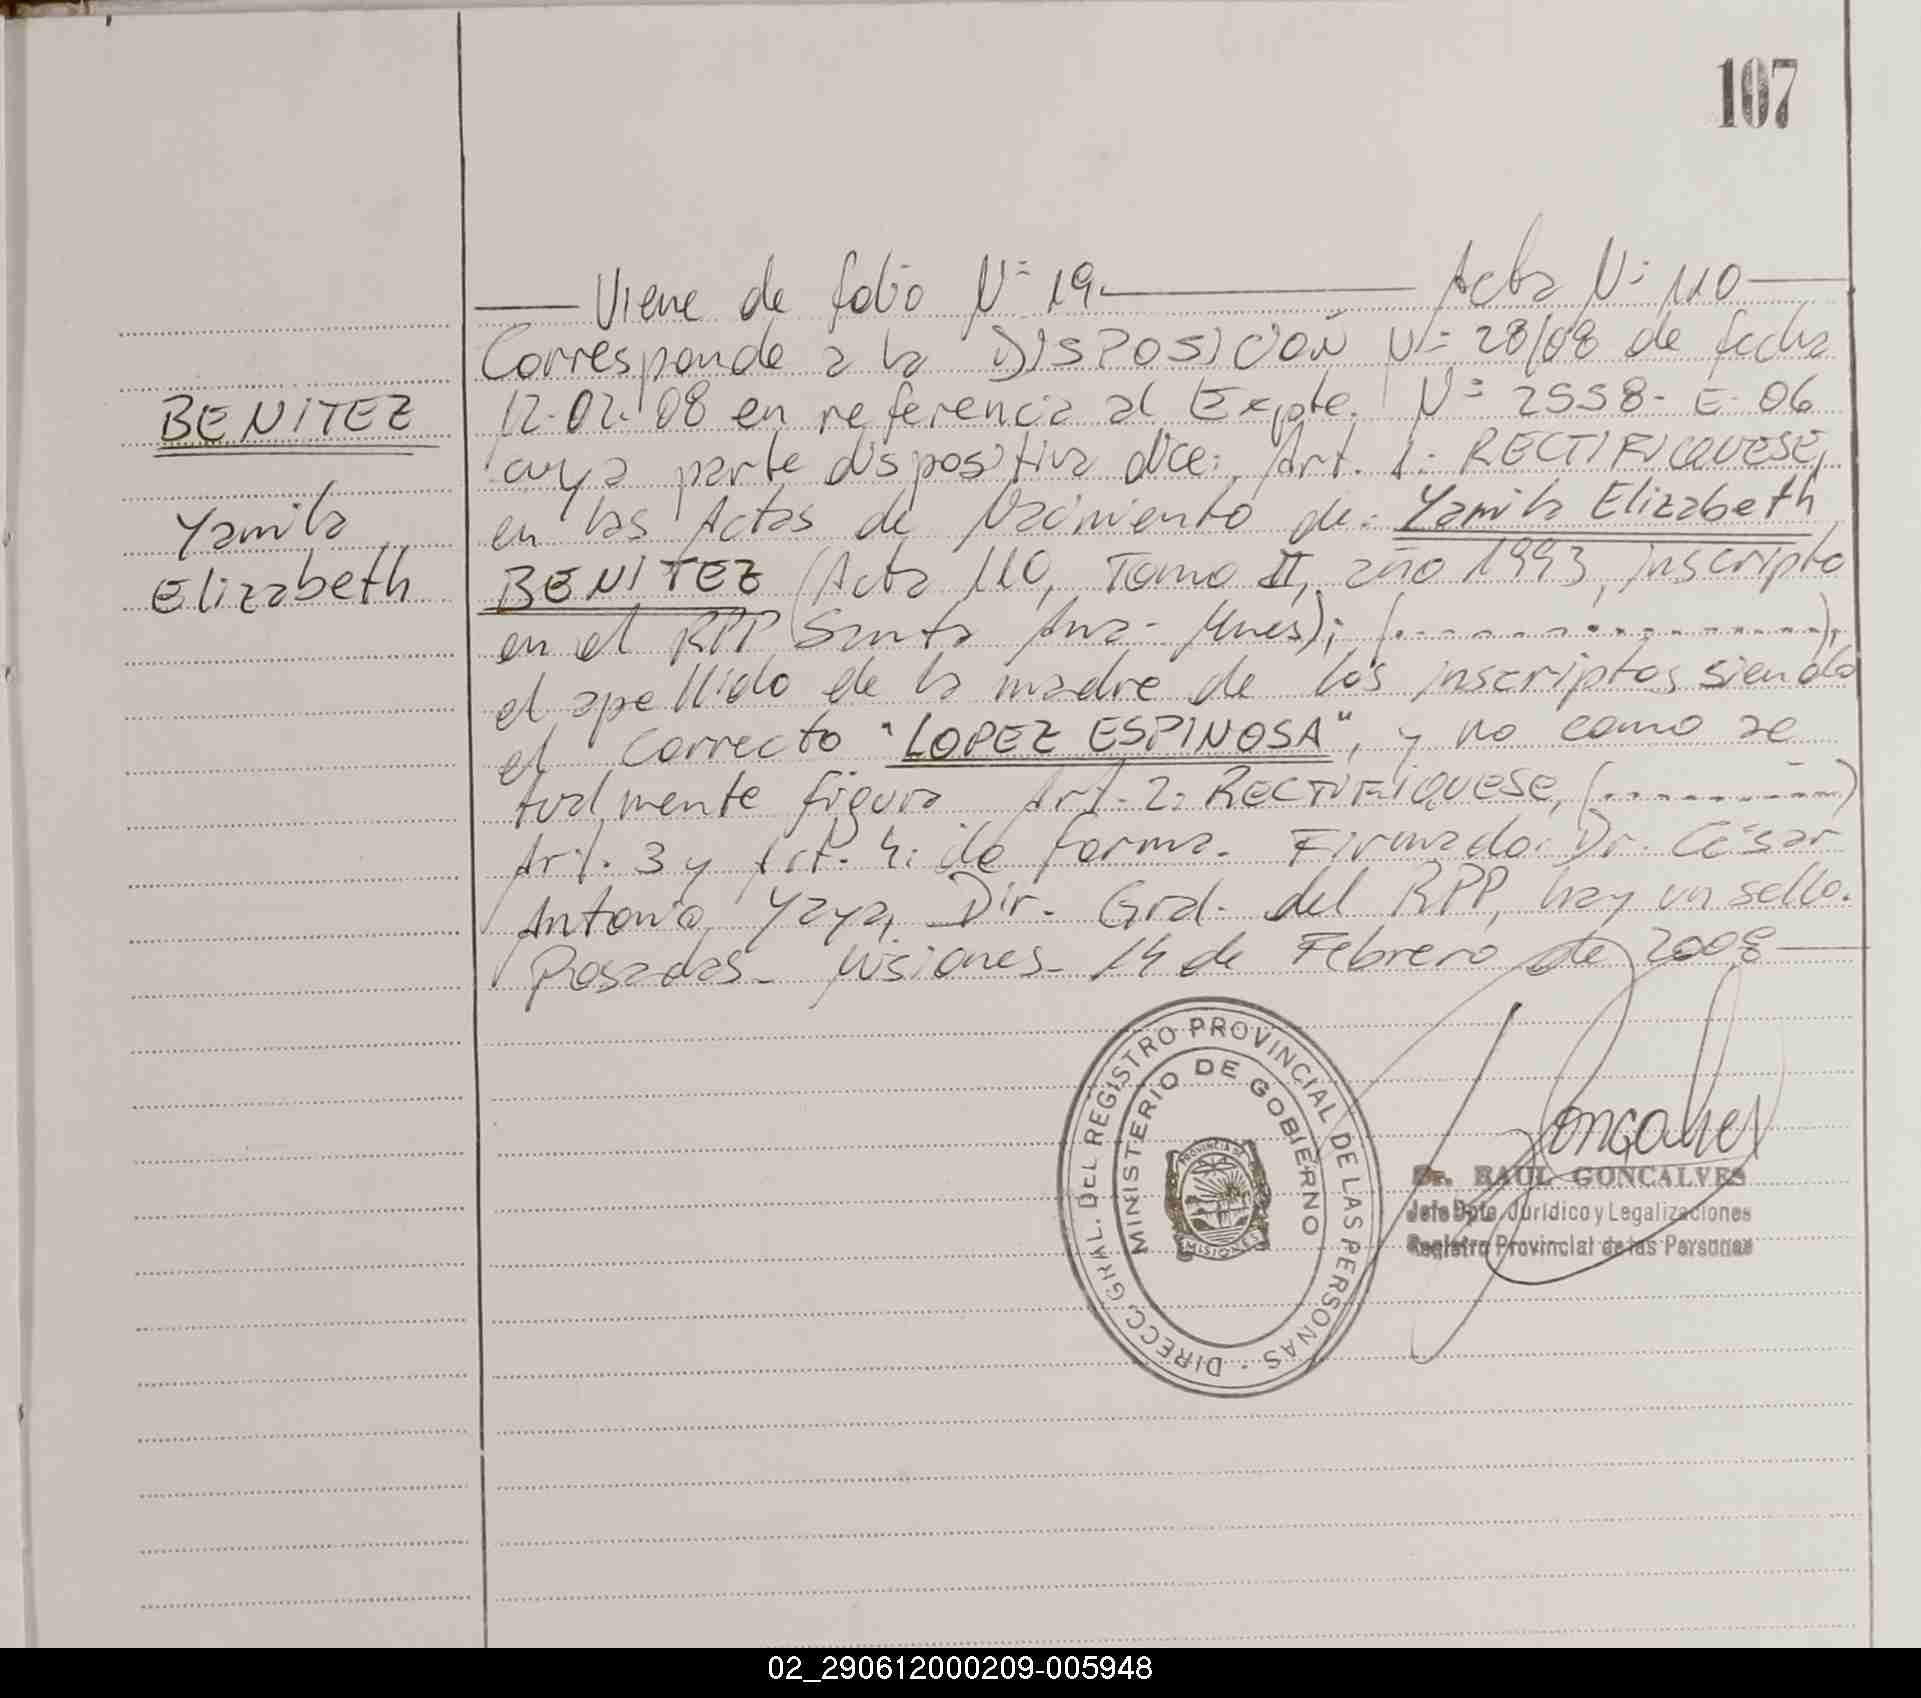 107
Viene de folio Nº 19. Acta Nº 110
Corresponde a la DISPOSICION Nº 28/08 de fecha
12-02-08 en referencia al Expte. Nº 2558-E-06
cuya parte dispositiva dice: Art. 1: RECTIFIQUESE,
en las Actas de Nacimiento de: Yamila Elizabeth
BENITEZ (Acta 110, Tomo II, año 1993, inscripto
en el RPP Santa Ana- Mnes); (.................);
el apellido de la madre de los inscriptos siendo
el correcto "LOPEZ ESPINOSA", y no como ac
tualmente figura Art. 2: RECTIFIQUESE, (............)
Art. 3 y Art. 4: de forma. Firmado: Dr. César
Antonio Yaya, Dir. Gral. del RPP, hay un sello.
Posadas- Misiones- 14 de Febrero de 2008
BENITEZ
Yamila
Elizabeth
DIRECC. GRAL. DEL REGISTRO PROVINCIAL DE LAS PERSONAS
MINISTERIO DE GOBIERNO
PROVINCIA DE
MISIONES
Goncalves
Dr. RAUL GONCALVES
Jefe Dpto. Jurídico y Legalizaciones
Registro Provincial de las Personas
02_290612000209-005948